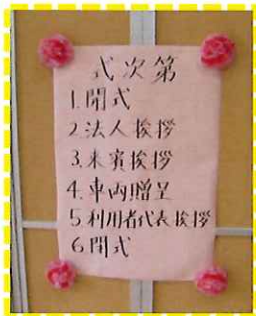 式次第
1.開式
2.法人挨拶
3.来賓挨拶
4.車両贈呈
5.利用者代表挨拶
6.閉式